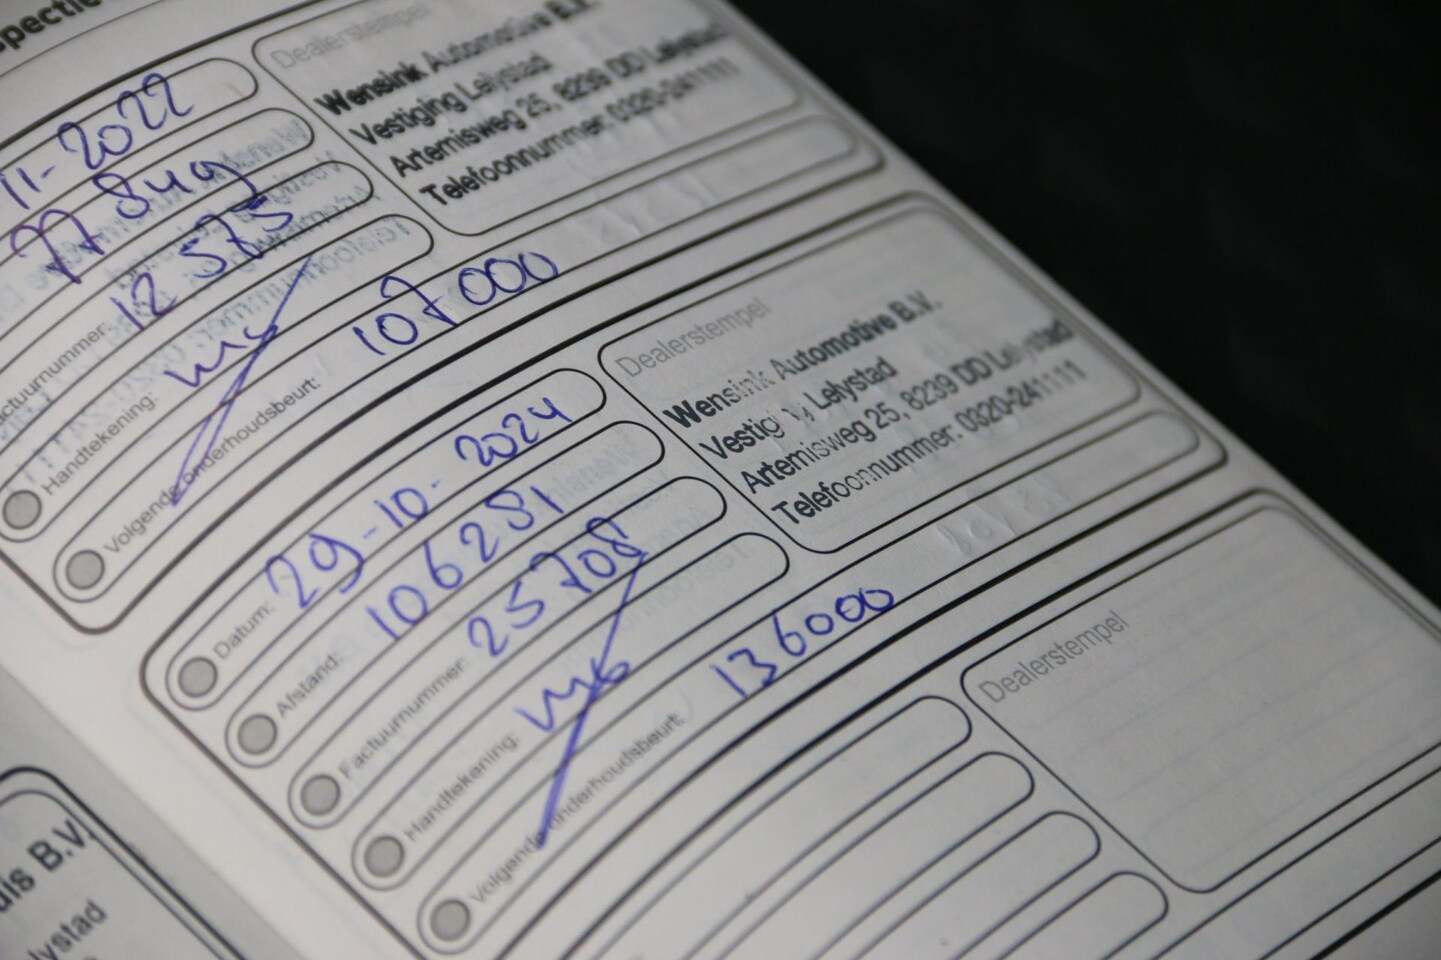 11-2022
77 849
12 575
Handtekening:
Volgende onderhoudsbeurt: 107 000
Dealerstempel
Wensink Automotive B.V.
Vestiging Lelystad
Artemisweg 25, 8239 DD Lelystad
Telefoonnummer: 0320-241111
Datum: 29-10-2024
Afstand: 106281
Factuurnummer: 25708
Handtekening:
Volgende onderhoudsbeurt: 136000
Dealerstempel
Wensink Automotive B.V.
Vestigi Lelystad
Artemisweg 25, 8239 DD Lelystad
Telefoonnummer: 0320-241111
Dealerstempel
B.V.